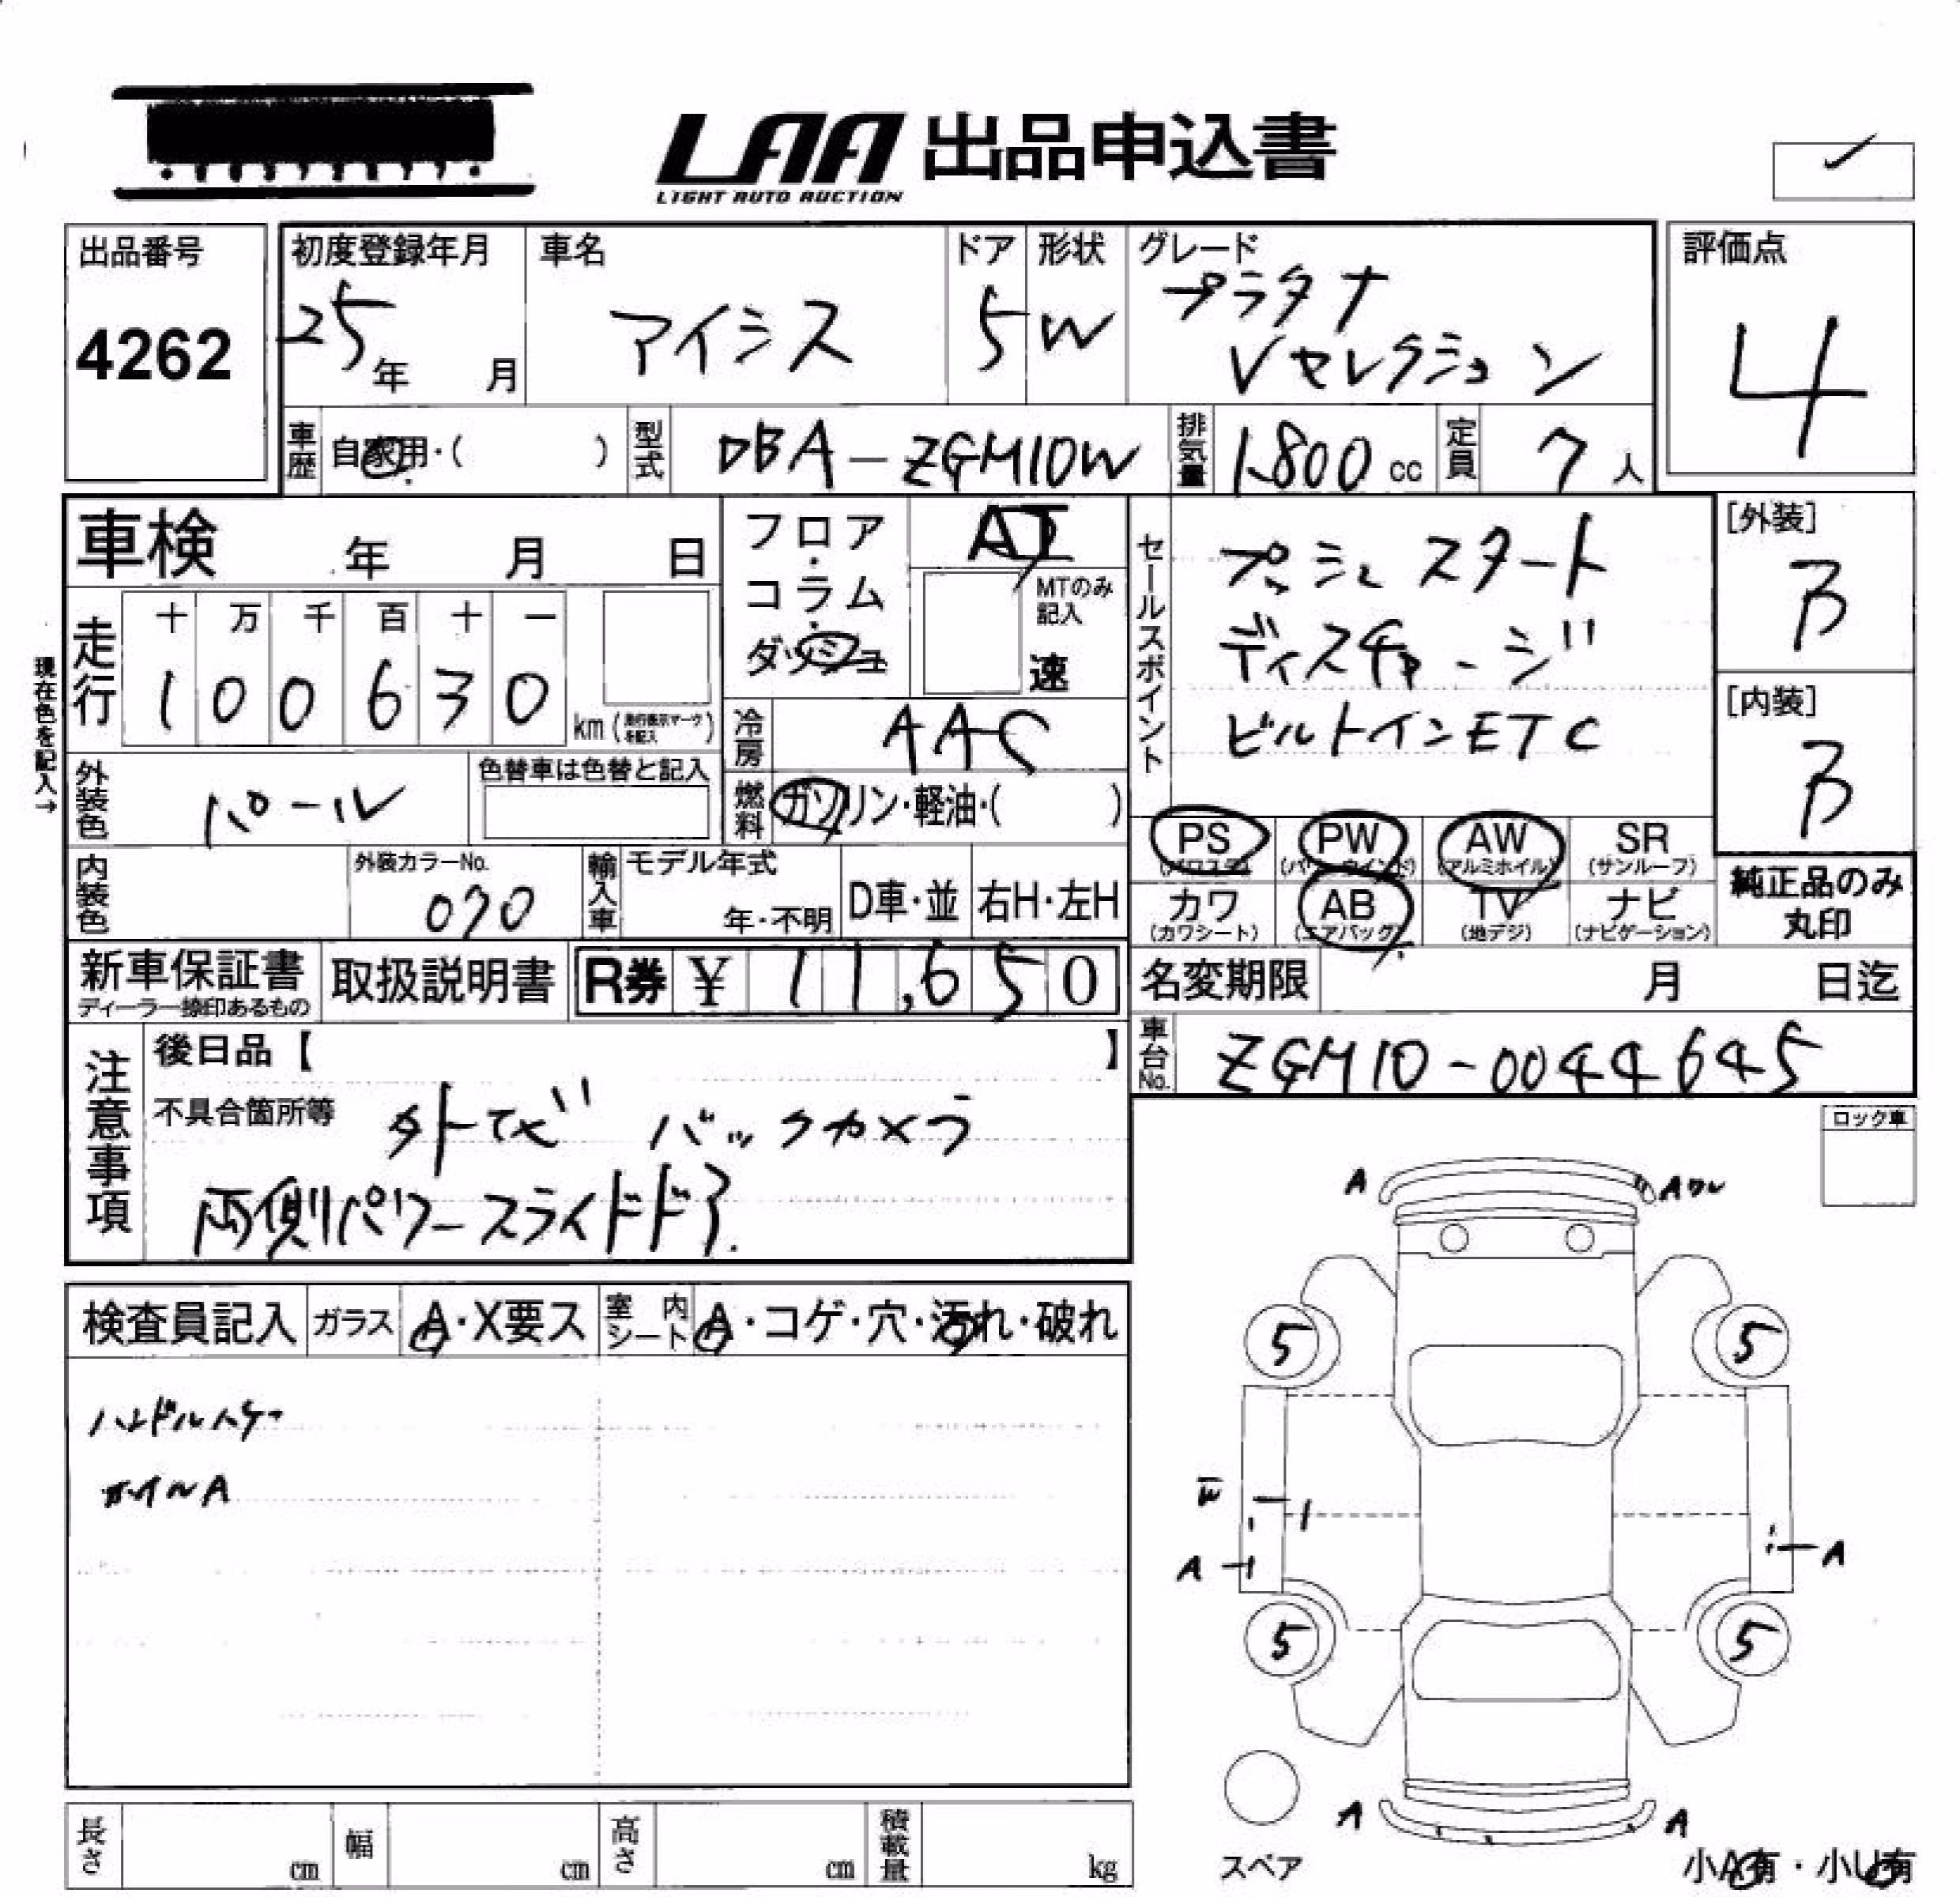 LAA 出品申込書
LIGHT AUTO AUCTION
出品番号
4262
初度登録年月
25年 月
車名
アイシス
ドア
5
形状
W
グレード
プラタナ
Vセレクション
評価点
4
車歴 自家用・( )
型式 DBA-ZGM10W
排気量 1.800 cc
定員 7 人
車検 年 月 日
フロア・コラム・ダッシュ
AT
MTのみ記入
速
走行
十 万 千 百 十 一
1 0 0 6 3 0
km (走行表示マークを記入)
現在色を記入→
冷房 AAC
燃料 ガソリン・軽油・( )
外装色 パール
色替車は色替と記入
内装色
外装カラーNo.
070
輸入車
モデル年式
年・不明
D車・並
右H・左H
セールスポイント
プッシュスタート
ディスチャージ
ビルトインETC
[外装]
B
[内装]
B
PS PW AW SR
(パワステ) (パワーウインド) (アルミホイル) (サンルーフ)
カワ AB TV ナビ
(カワシート) (エアバック) (地デジ) (ナビゲーション)
純正品のみ
丸印
新車保証書
ディーラー捺印あるもの
取扱説明書
R券 ¥ 11,650
名変期限 月 日迄
車台No. ZGM10-0044645
注意事項
後日品【 】
不具合箇所等
外ナビ バックカメラ
両側パワースライドドア
ロック車
検査員記入
ガラス A・X要ス
室内シート A・コゲ・穴・汚れ・破れ
ハンドルハゲ
ホイルA
A
Aワレ
5
5
W
A
A
5
5
A
A
スペア
小A有・小U有
長さ cm
幅 cm
高さ cm
積載量 kg